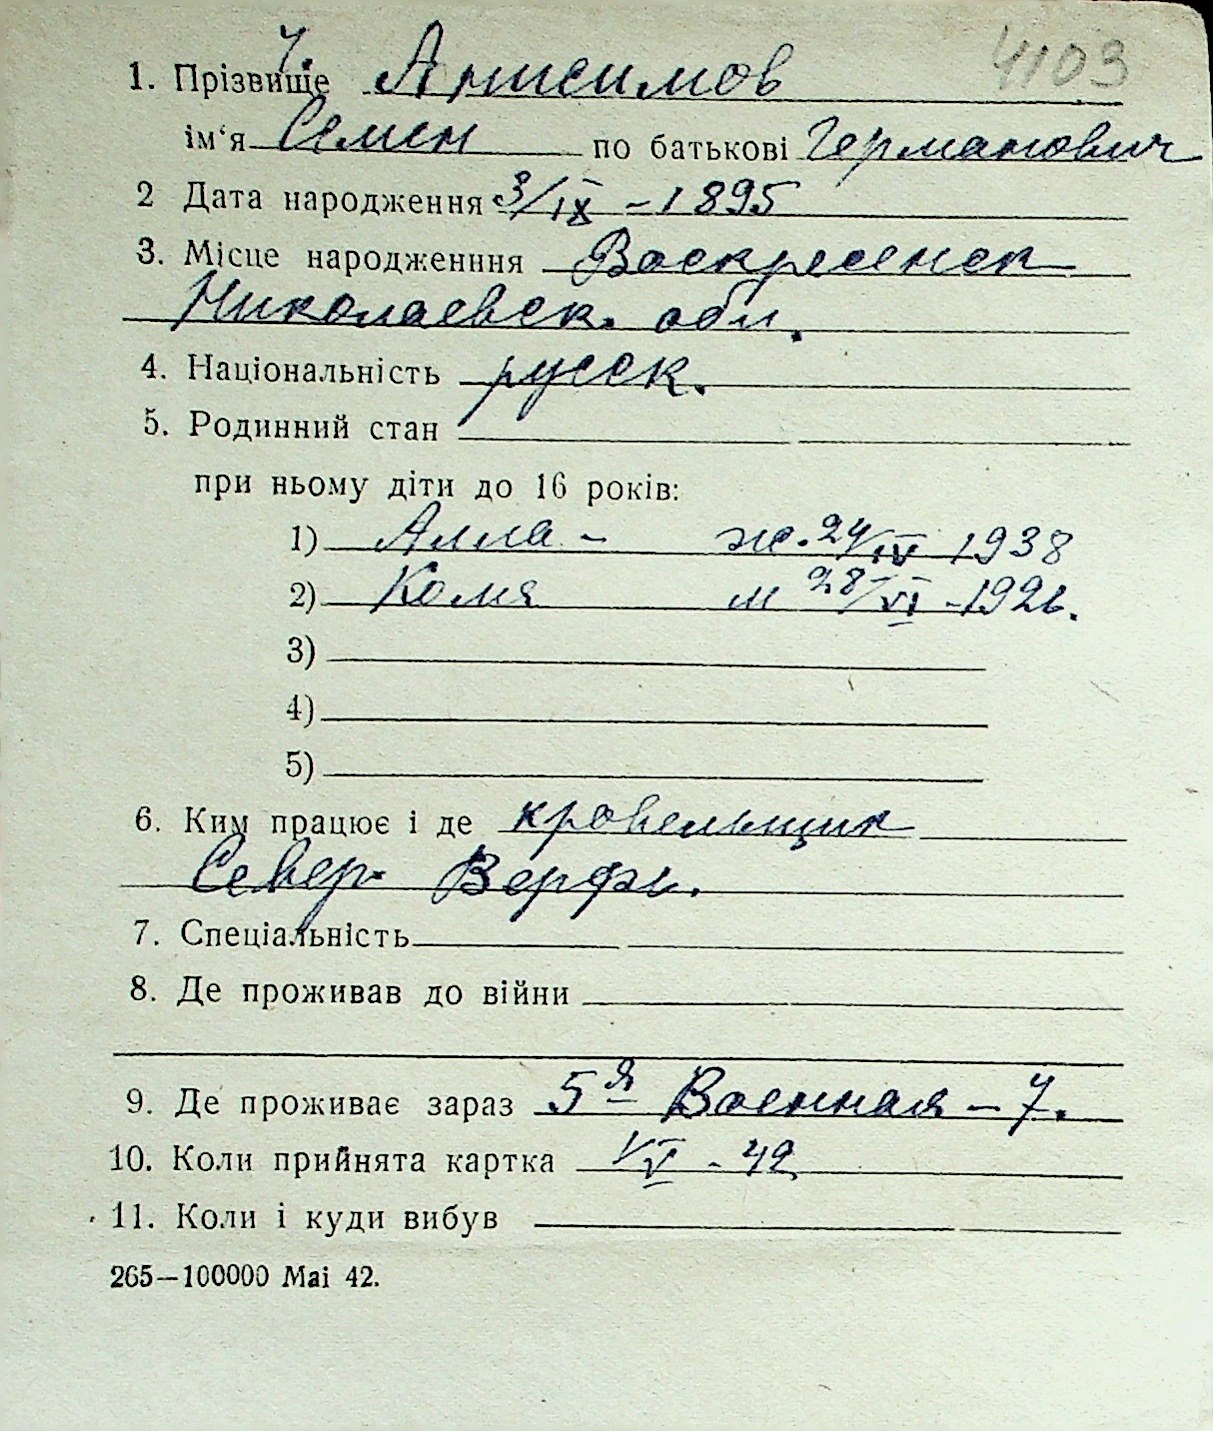 4103
ч.
1. Прізвище Анисимов
ім‘я Семен по батькові Германович
2 Дата народження 3/IX – 1895
3. Місце народженння Воскресенск
Николаевск. обл.
4. Національність русск.
5. Родинний стан
при ньому діти до 16 років:
1) Алла – ж. 24/IV 1938
2) Коля м 28/VI - 1926.
3)
4)
5)
6. Ким працює і де кровельщик
Север. Верфь.
7. Спеціальність
8. Де проживав до війни
9. Де проживає зараз 5я Военная – 7.
10. Коли прийнята картка V - 42
11. Коли і куди вибув
265—100000 Mai 42.